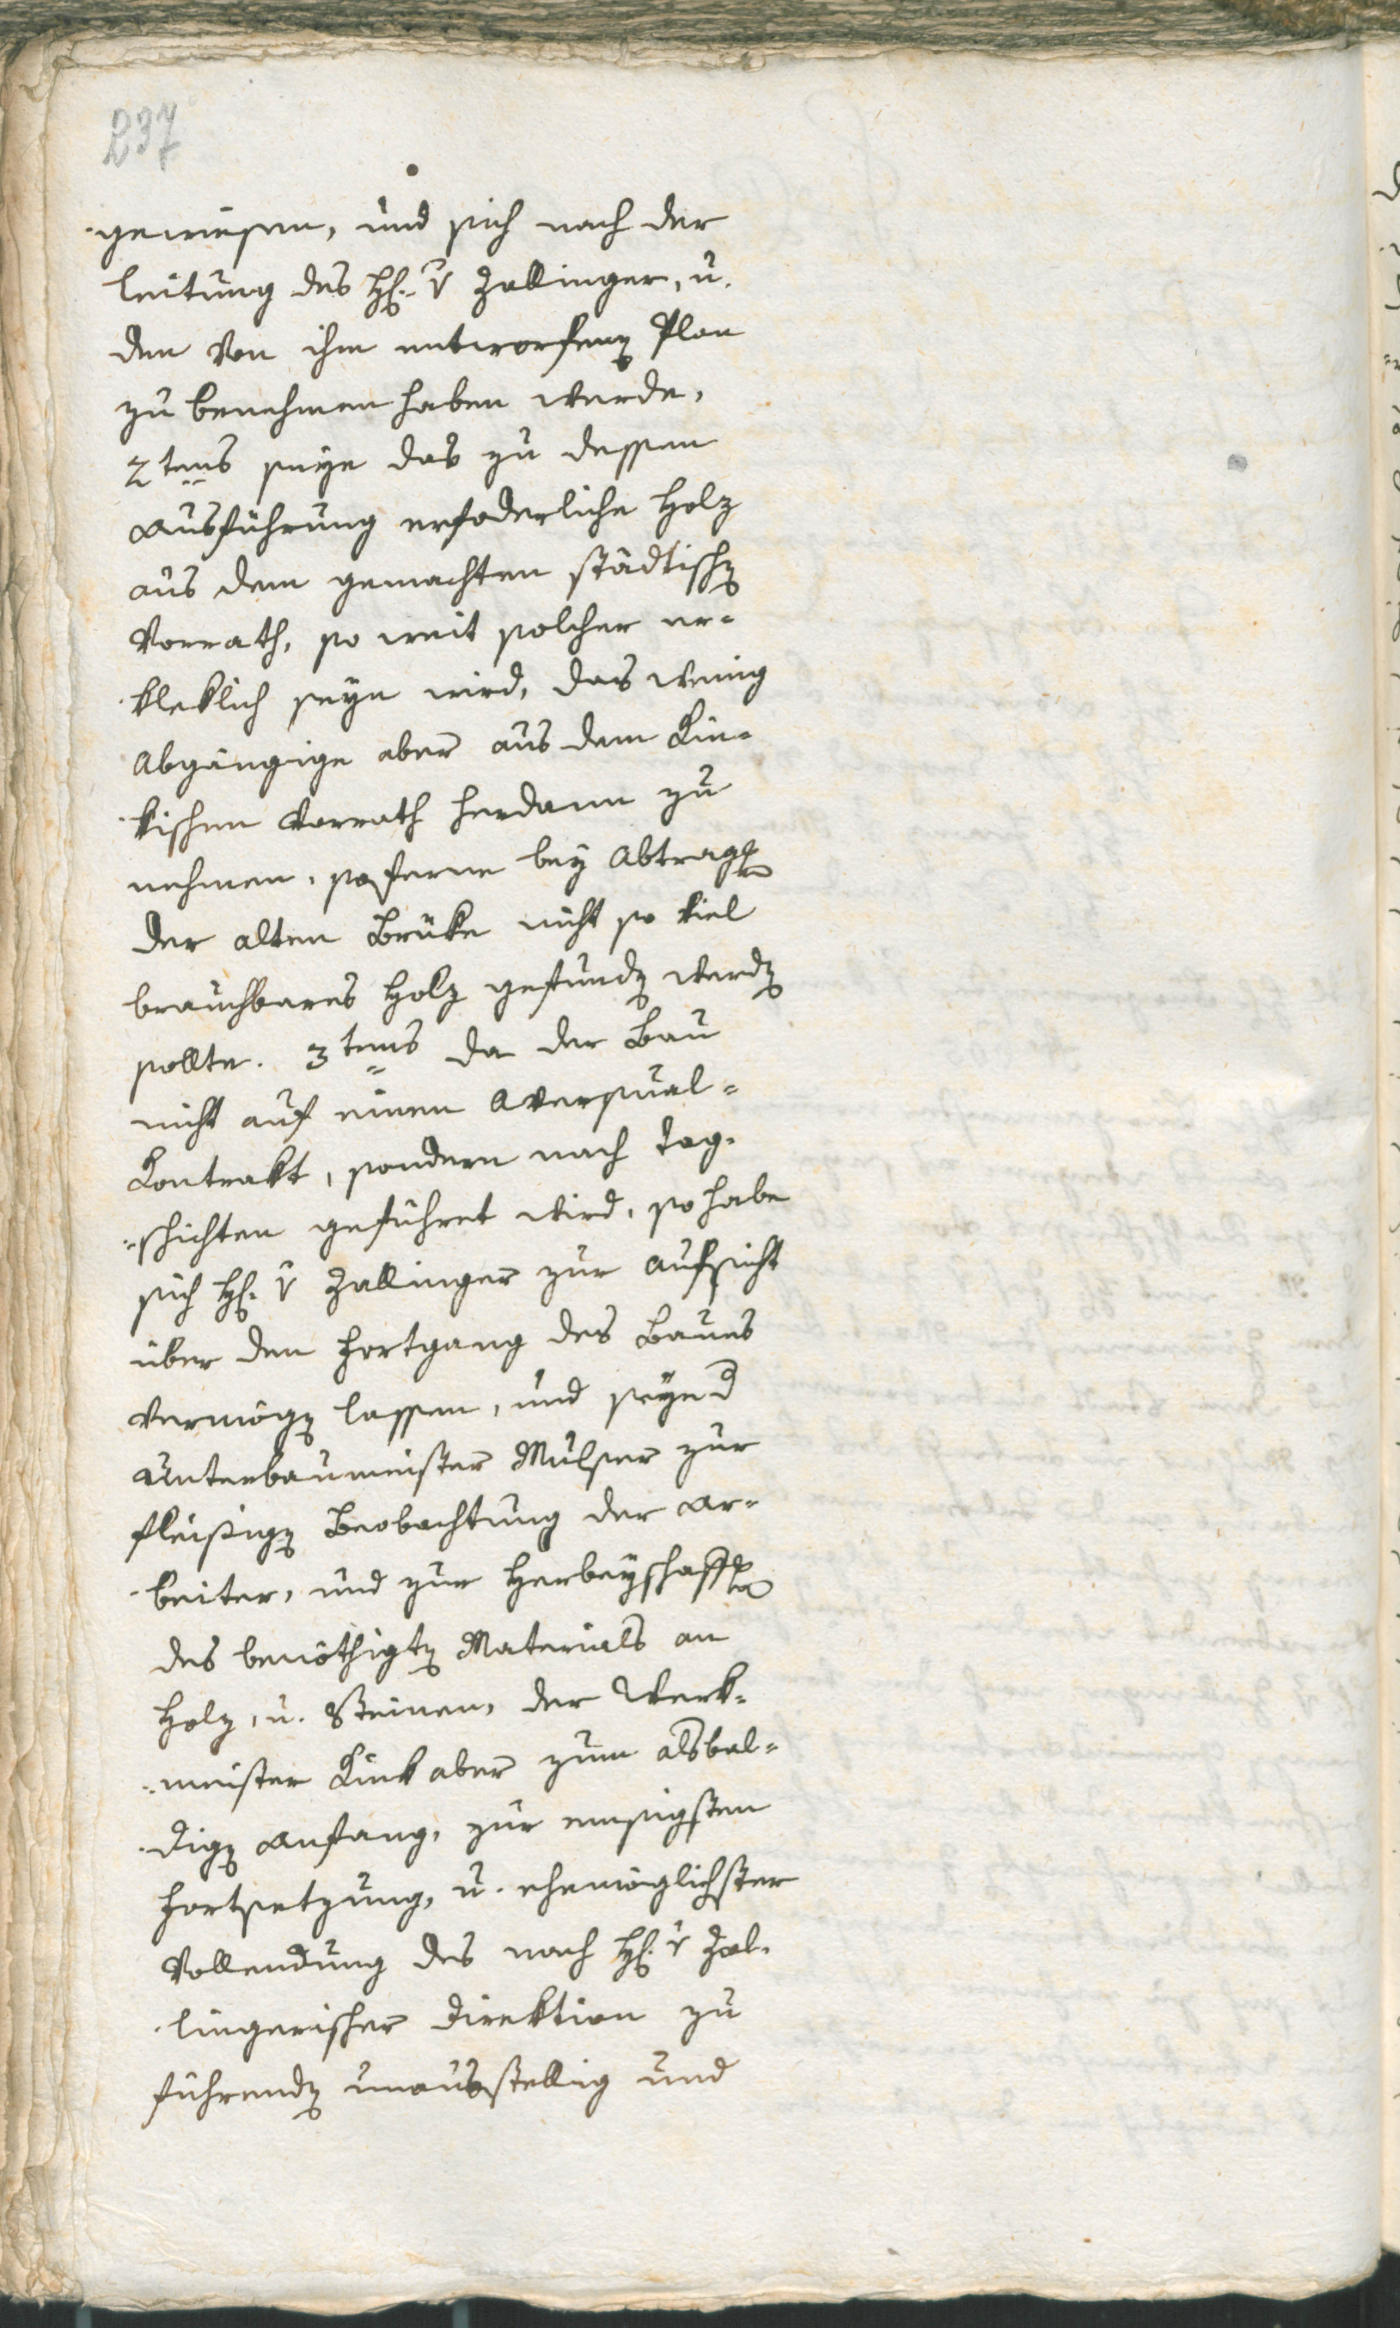 237
gewiesen, und sich nach der
Leitung des H. v Zallinger, u.
den von ihm entworfenen Plan
zu benehmen haben werde,
2tens seye das zu dessen
Ausführung erfoderliche Holz
aus dem gemachten städtischen
Vorrath, so weit solcher er-
kleklich seyn wird, das wenig
Abgängige aber aus dem Kin-
kischen Vorrath herdann zu
nehmen, soferne bey Abtragung
der alten Brüke nicht so viel
brauchbares Holz gefunden werden
sollte. 3tens da der Bau
nicht auf einen Aversual-
Kontrakt, sondern nach Tag-
schichten geführet wird, so habe
sich H. v Zallinger zur Aufsicht
über den Fortgang des Baues
vermögen lassen, und seye d
Unterbaumeister Mulser zur
fleißigen Beobachtung der Ar-
beiter, und zur Herbeyschaffung
des benöthigten Materials an
Holz, u. Steinen, der Werk-
meister Kink aber zum alsbal-
digen Anfang, zur emsigsten
Fortsetzung, u. ehemöglichster
Vollendung des nach H. v Zal-
lingerischer Direktion zu
führenden unausstellig und